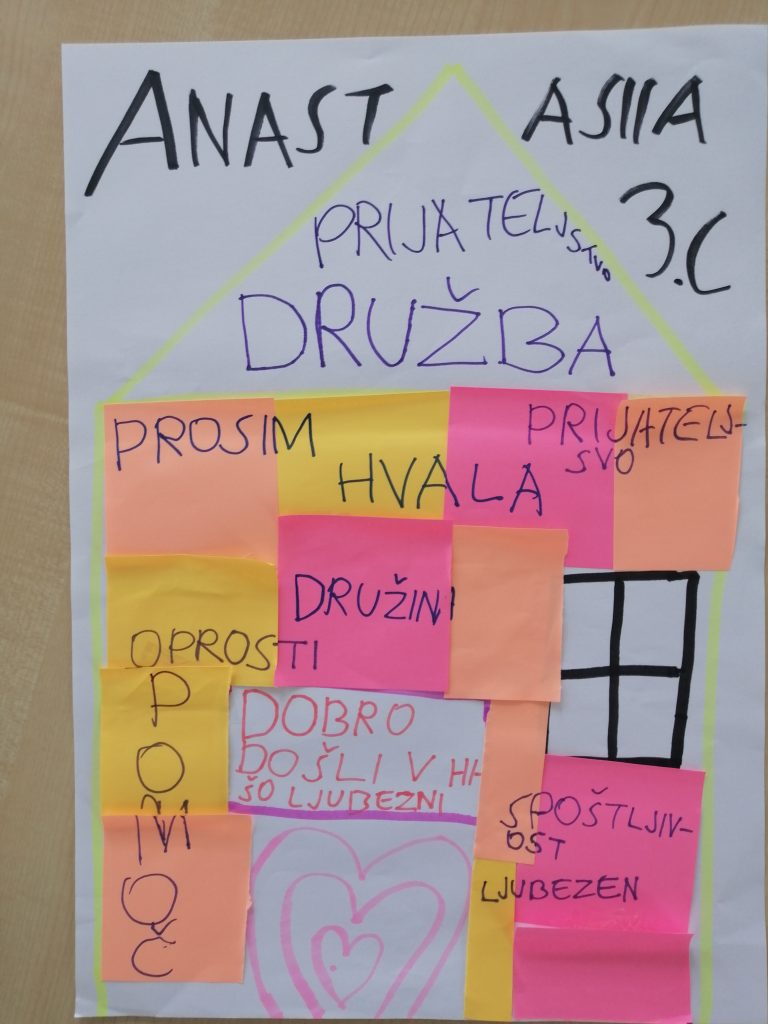 ANASTASIIA
3.C
PRIJATELJSTVO
DRUŽBA
PROSIM
HVALA
PRIJATELJ-
SVO
DRUŽINI
OPROSTI
POMOČ
DOBRO
DOŠLI V HI
ŠO LJUBEZNI
SPOŠTLJIV-
OST
LJUBEZEN